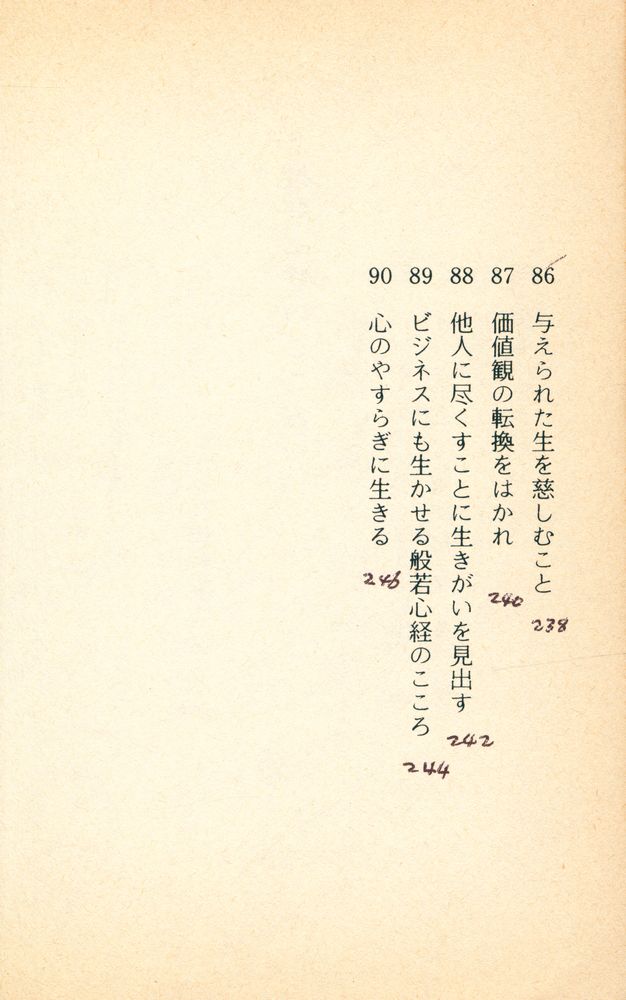 86 与えられた生を慈しむこと 238
87 価値観の転換をはかれ 240
88 他人に尽くすことに生きがいを見出す 242
89 ビジネスにも生かせる般若心経のこころ 244
90 心のやすらぎに生きる 246